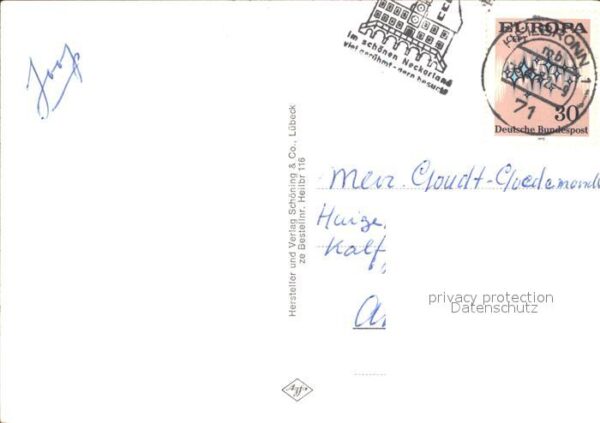 Joop
im schönen Neckarland
viel gerühmt - gern besucht
EUROPA
HEILBRONN 1
mb
71
30
Deutsche Bundespost
Hersteller und Verlag Schöning & Co., Lübeck
ze Bestellnr. Heilbr 116
Mevr. Goudt-Goedemondt
Huize
Kalf
A
privacy protection
Datenschutz
Agfa